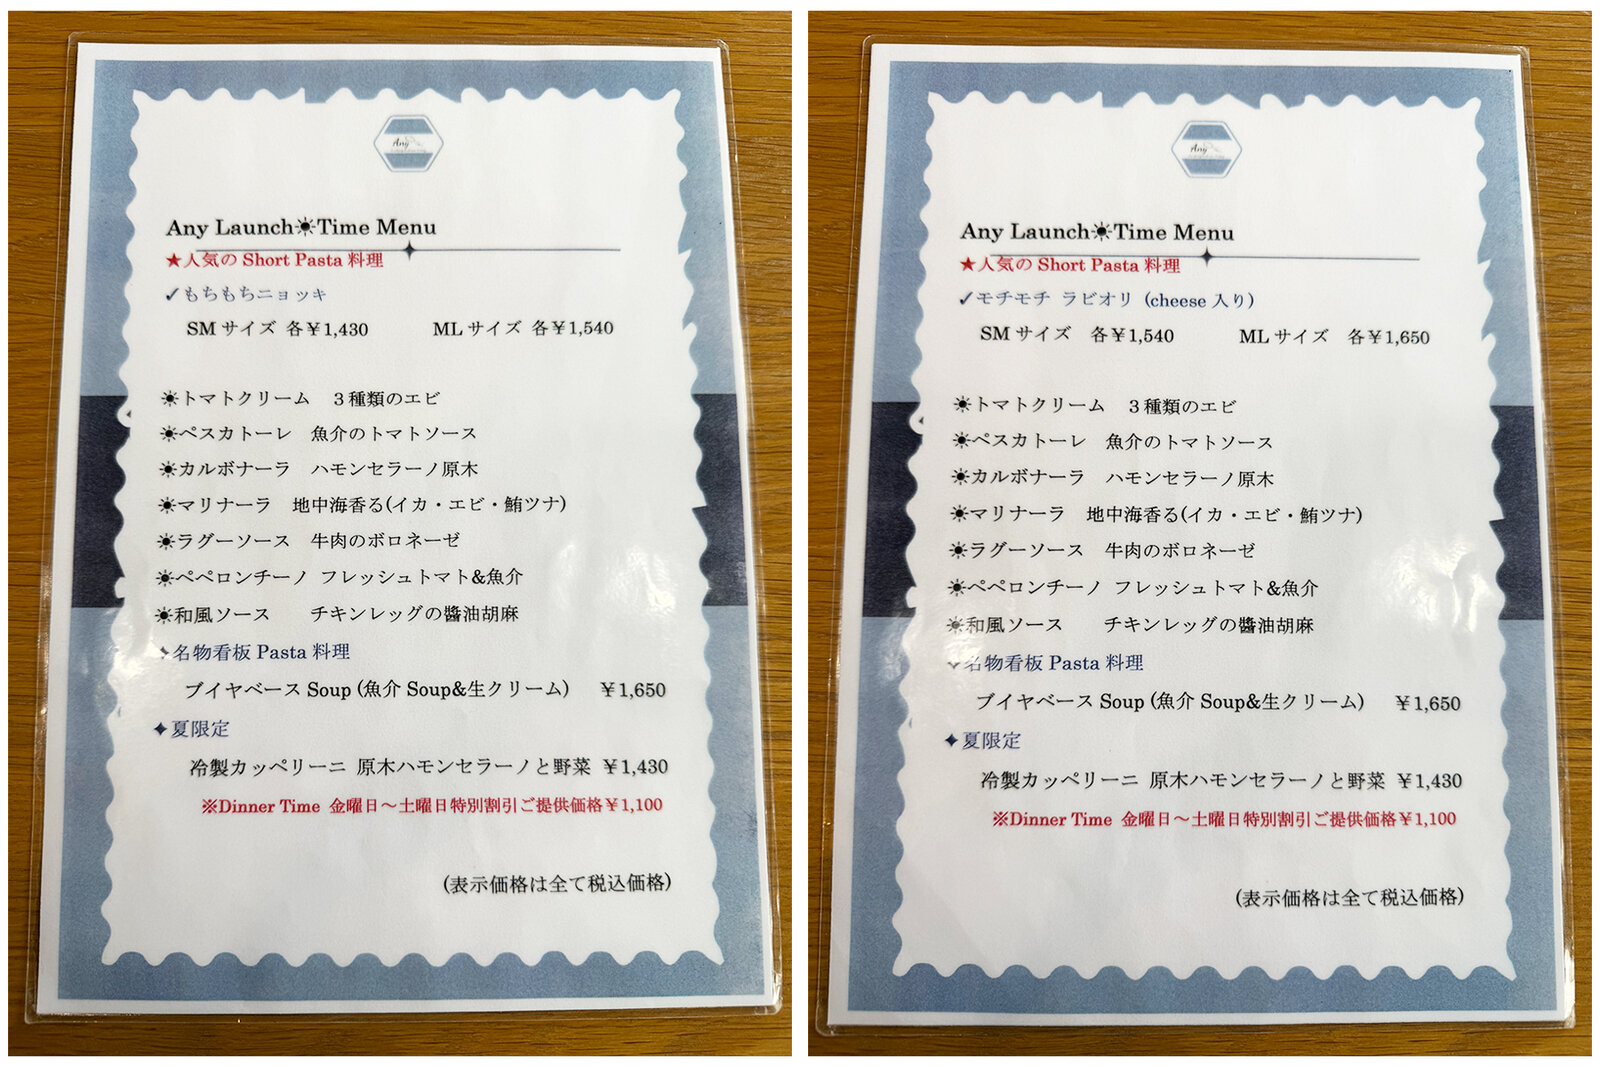 Any
Any Launch☀Time Menu
★人気の Short Pasta 料理
✓もちもちニョッキ
SM サイズ 各￥1,430 ML サイズ 各￥1,540
☀トマトクリーム ３種類のエビ
☀ペスカトーレ 魚介のトマトソース
☀カルボナーラ ハモンセラーノ原木
☀マリナーラ 地中海香る(イカ・エビ・鮪ツナ)
☀ラグーソース 牛肉のボロネーゼ
☀ペペロンチーノ フレッシュトマト&魚介
☀和風ソース チキンレッグの醬油胡麻
✦名物看板 Pasta 料理
ブイヤベース Soup (魚介 Soup&生クリーム) ￥1,650
✦夏限定
冷製カッペリーニ 原木ハモンセラーノと野菜 ￥1,430
※Dinner Time 金曜日～土曜日特別割引ご提供価格￥1,100
(表示価格は全て税込価格)
Any
Any Launch☀Time Menu
★人気の Short Pasta 料理
✓モチモチ ラビオリ (cheese 入り)
SM サイズ 各￥1,540 ML サイズ 各￥1,650
☀トマトクリーム ３種類のエビ
☀ペスカトーレ 魚介のトマトソース
☀カルボナーラ ハモンセラーノ原木
☀マリナーラ 地中海香る(イカ・エビ・鮪ツナ)
☀ラグーソース 牛肉のボロネーゼ
☀ペペロンチーノ フレッシュトマト&魚介
☀和風ソース チキンレッグの醬油胡麻
✦名物看板 Pasta 料理
ブイヤベース Soup (魚介 Soup&生クリーム) ￥1,650
✦夏限定
冷製カッペリーニ 原木ハモンセラーノと野菜 ￥1,430
※Dinner Time 金曜日～土曜日特別割引ご提供価格￥1,100
(表示価格は全て税込価格)